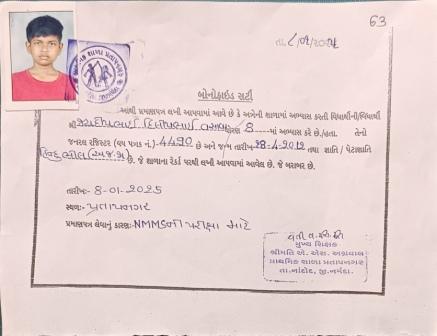 63
તા. 8/01/2025
બોનોફાઇડ સર્ટી
આથી પ્રમાણપત્ર લખી આપવામાં આવે છે કે અત્રેની શાળામાં અભ્યાસ કરતી વિદ્યાર્થીની/વિદ્યાર્થી
શ્રી દિલીપભાઈ વસાવા ધોરણ 8 માં અભ્યાસ કરે છે./હતા. તેનો
જનરલ રજિસ્ટર (વય પત્રક નં.)-4490 છે અને જન્મ તારીખ 28-4-2012 તથા જ્ઞાતિ / પેટાજ્ઞાતિ
હિન્દુ ભીલ (અ.જ.જા) છે. જે શાળાના રેકર્ડ પરથી લખી આપવામાં આવેલ છે. જે બરાબર છે.
તારીખ:- 8-01-2025
સ્થળ:- પ્રતાપનગર
પ્રમાણપત્ર લેવાનું કારણ:-NMMSની પરીક્ષા માટે
મુખ્ય શિક્ષક
શ્રીમતિ એ. એસ. અગ્રવાલ
પ્રાથમિક શાળા પ્રતાપનગર
તા.નાંદોદ, જી.નર્મદા.